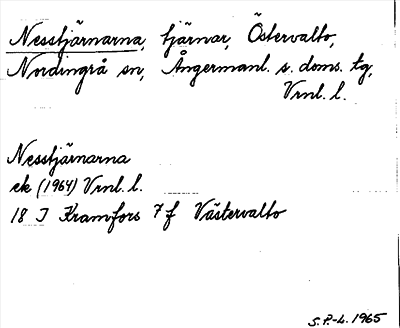 Nesstjärnarna, tjärnar, Östervalto,
Nordingrå sn, Ångermanl. s. doms. tg,
Vrnl. l.
Nesstjärnarna
ek (1964) Vrnl. l.
18 I Kramfors 7 f Västervalto
S.P.-L. 1965